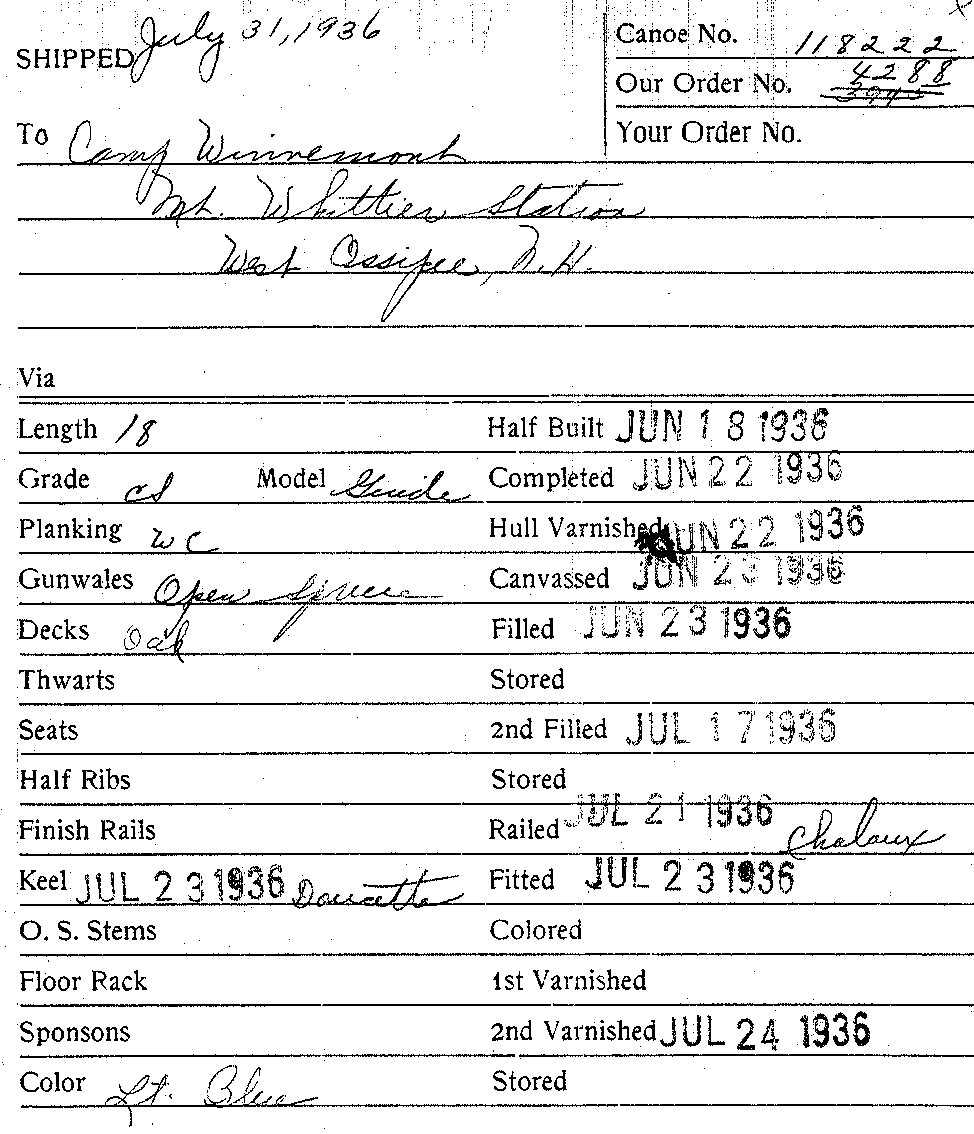 SHIPPED July 31, 1936
Canoe No. 118222
Our Order No. 4288
3945
To Camp Winnemont
Your Order No.
Mt. Whittier Station
West Ossipee, N.H.
Via
Length 18 Half Built JUN 18 1936
Grade cs Model Guide Completed JUN 22 1936
Planking WC Hull Varnished JUN 22 1936
Gunwales Open Spruce Canvassed JUN 23 1936
Decks Oak Filled JUN 23 1936
Thwarts Stored
Seats 2nd Filled JUL 17 1936
Half Ribs Stored
Finish Rails Railed JUL 21 1936 Chaloux
Keel JUL 23 1936 Doucette Fitted JUL 23 1936
O. S. Stems Colored
Floor Rack 1st Varnished
Sponsons 2nd Varnished JUL 24 1936
Color Lt. Blue Stored